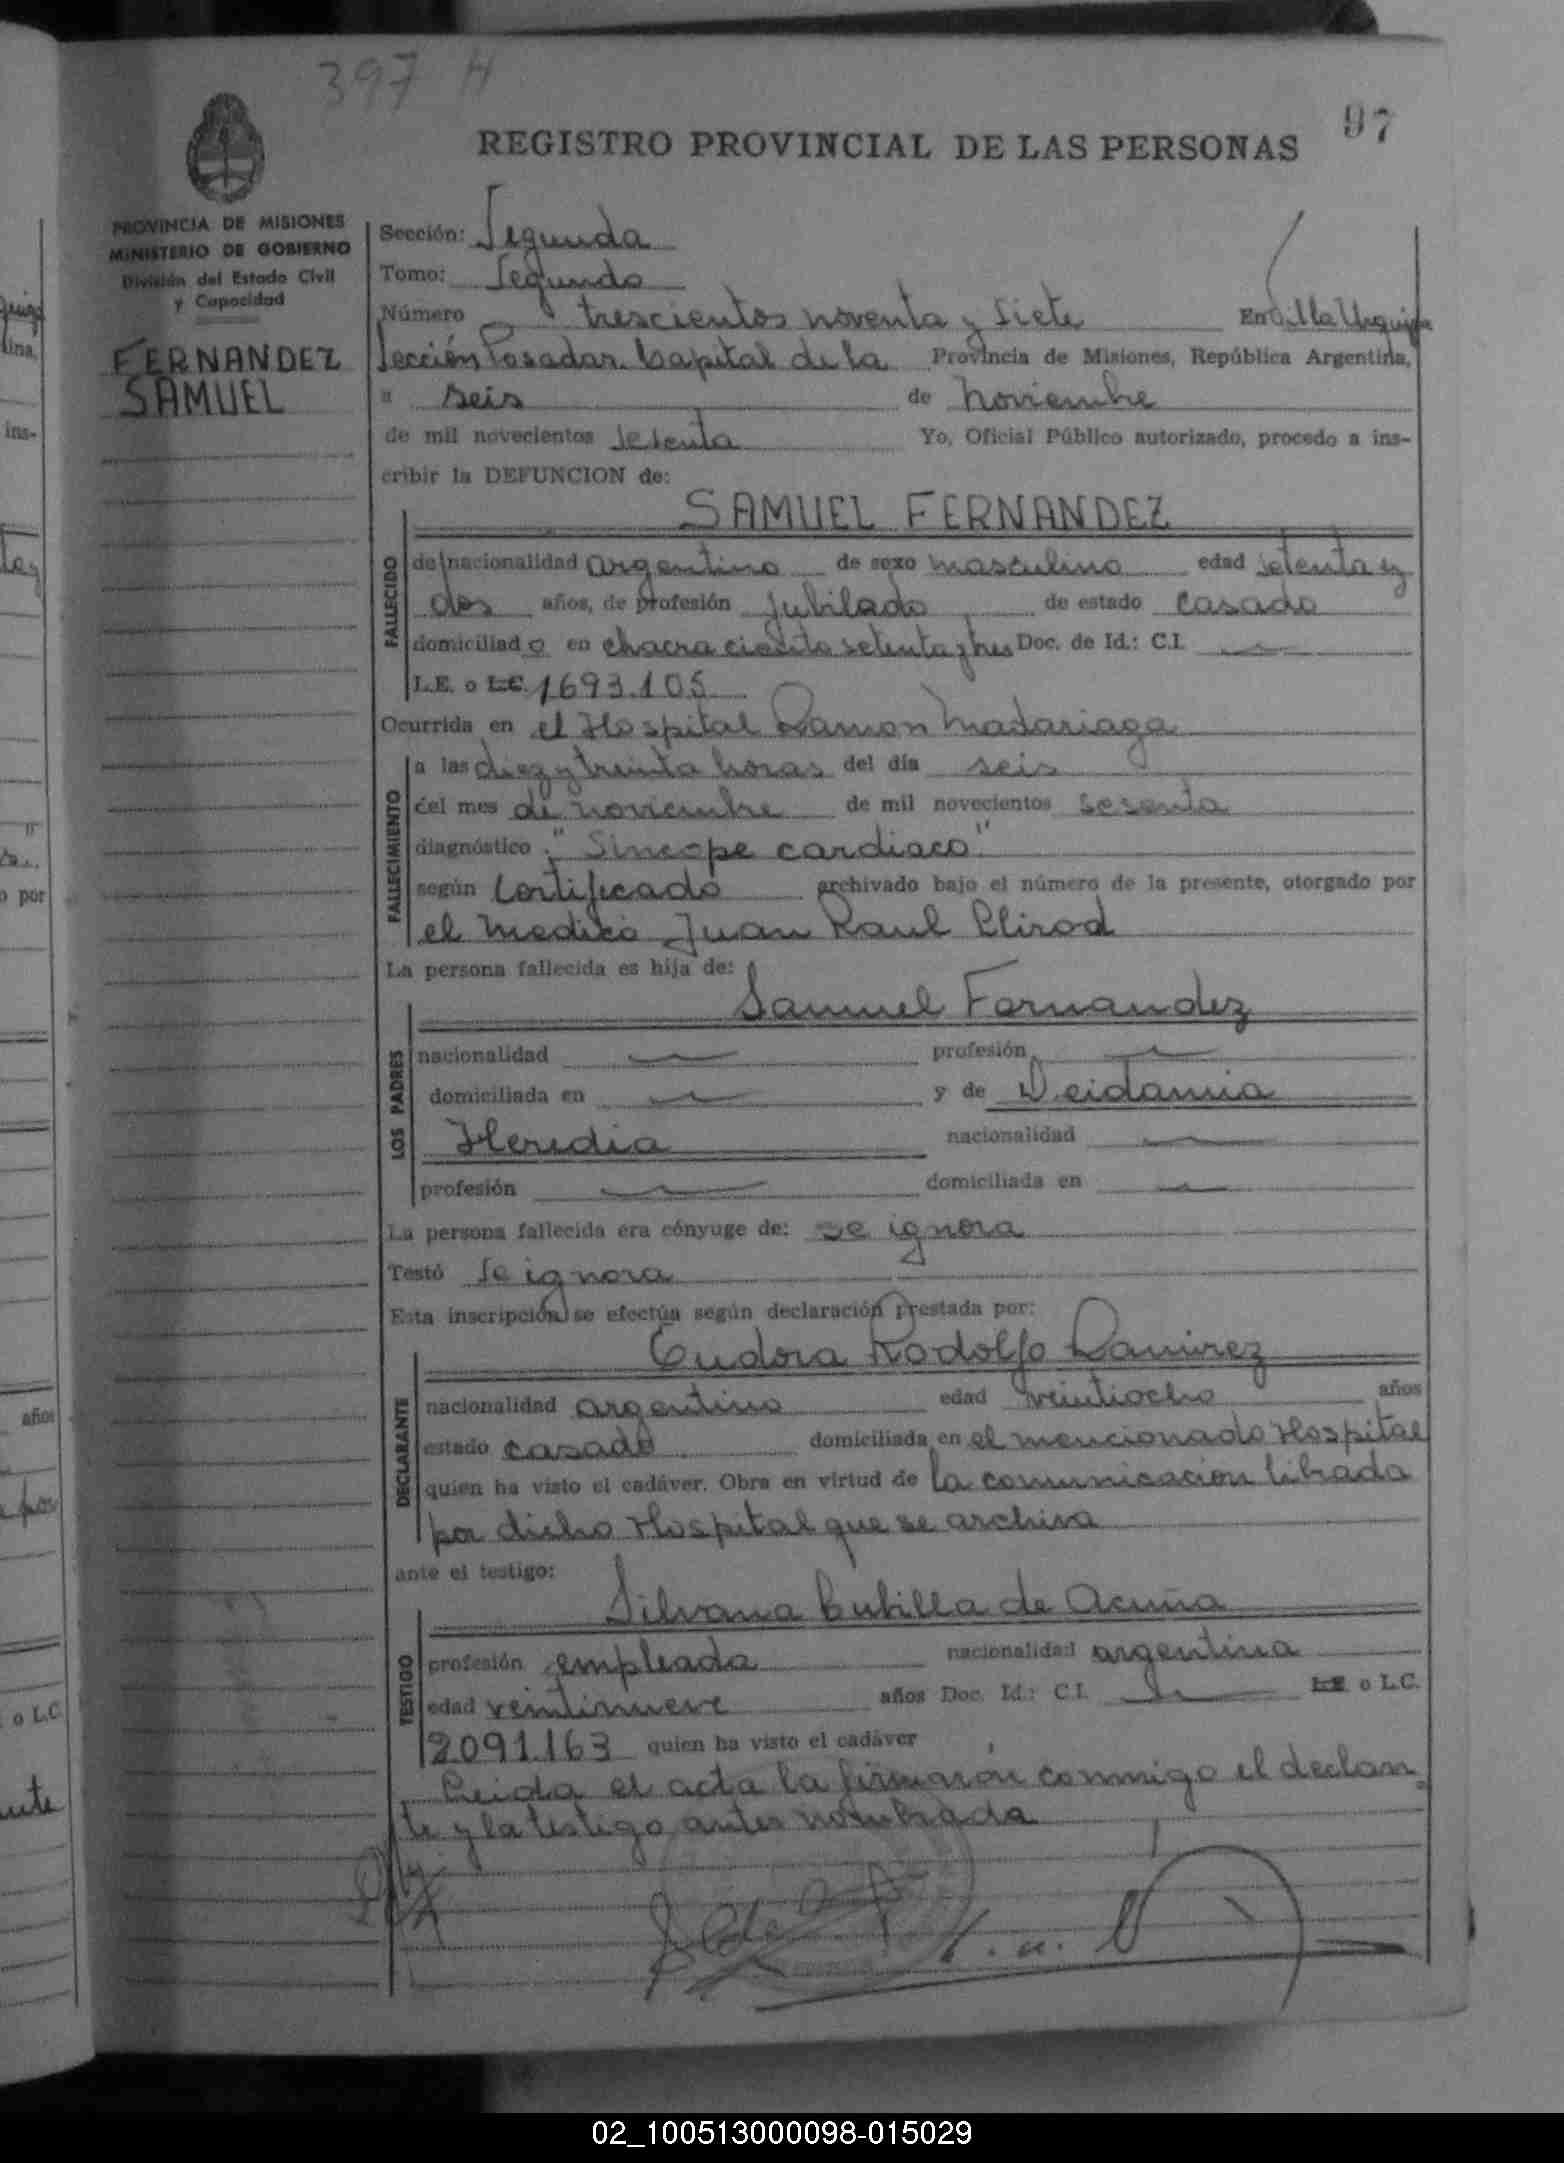 397 H
97
REGISTRO PROVINCIAL DE LAS PERSONAS
PROVINCIA DE MISIONES
MINISTERIO DE GOBIERNO
División del Estado Civil
y Capacidad
FERNANDEZ
SAMUEL
Sección: Segunda
Tomo: Segundo
Número trescientos noventa y siete En Villa Urquiza
Sección Posadas. Capital de la Provincia de Misiones, República Argentina,
a seis de noviembre
de mil novecientos sesenta Yo, Oficial Público autorizado, procedo a ins-
cribir la DEFUNCION de:
SAMUEL FERNANDEZ
FALLECIDO
de nacionalidad argentino de sexo masculino edad setenta y
dos años, de profesión jubilado de estado casado
domiciliado en chacra ciento setenta y tres Doc. de Id.: C.I.
L.E. o L.C. 1693.105
Ocurrida en el Hospital Ramon Madariaga
FALLECIMIENTO
a las diez y treinta horas del día seis
del mes de noviembre de mil novecientos sesenta
diagnóstico: "Sincope cardiaco"
según Certificado archivado bajo el número de la presente, otorgado por
el medico Juan Raul
La persona fallecida es hija de:
Samuel Fernandez
LOS PADRES
nacionalidad profesión
domiciliada en y de Deidamia
Heredia nacionalidad
profesión domiciliada en
La persona fallecida era cónyuge de: se ignora
Testó se ignora
Esta inscripción se efectúa según declaración prestada por:
Eudora Rodolfo Ramirez
DECLARANTE
nacionalidad argentino edad veintiocho años
estado casado domiciliada en el mencionado Hospital
quien ha visto el cadáver. Obra en virtud de la comunicacion librada
por dicho Hospital que se archiva
ante el testigo:
Silvana Cubilla de Acuña
TESTIGO
profesión empleada nacionalidad argentina
edad veintinueve años Doc. Id.: C.I. L.E. o L.C.
2091.163 quien ha visto el cadáver
Leida el acta la firmaron conmigo el declaran
te y la testigo antes nombrada
02_100513000098-015029